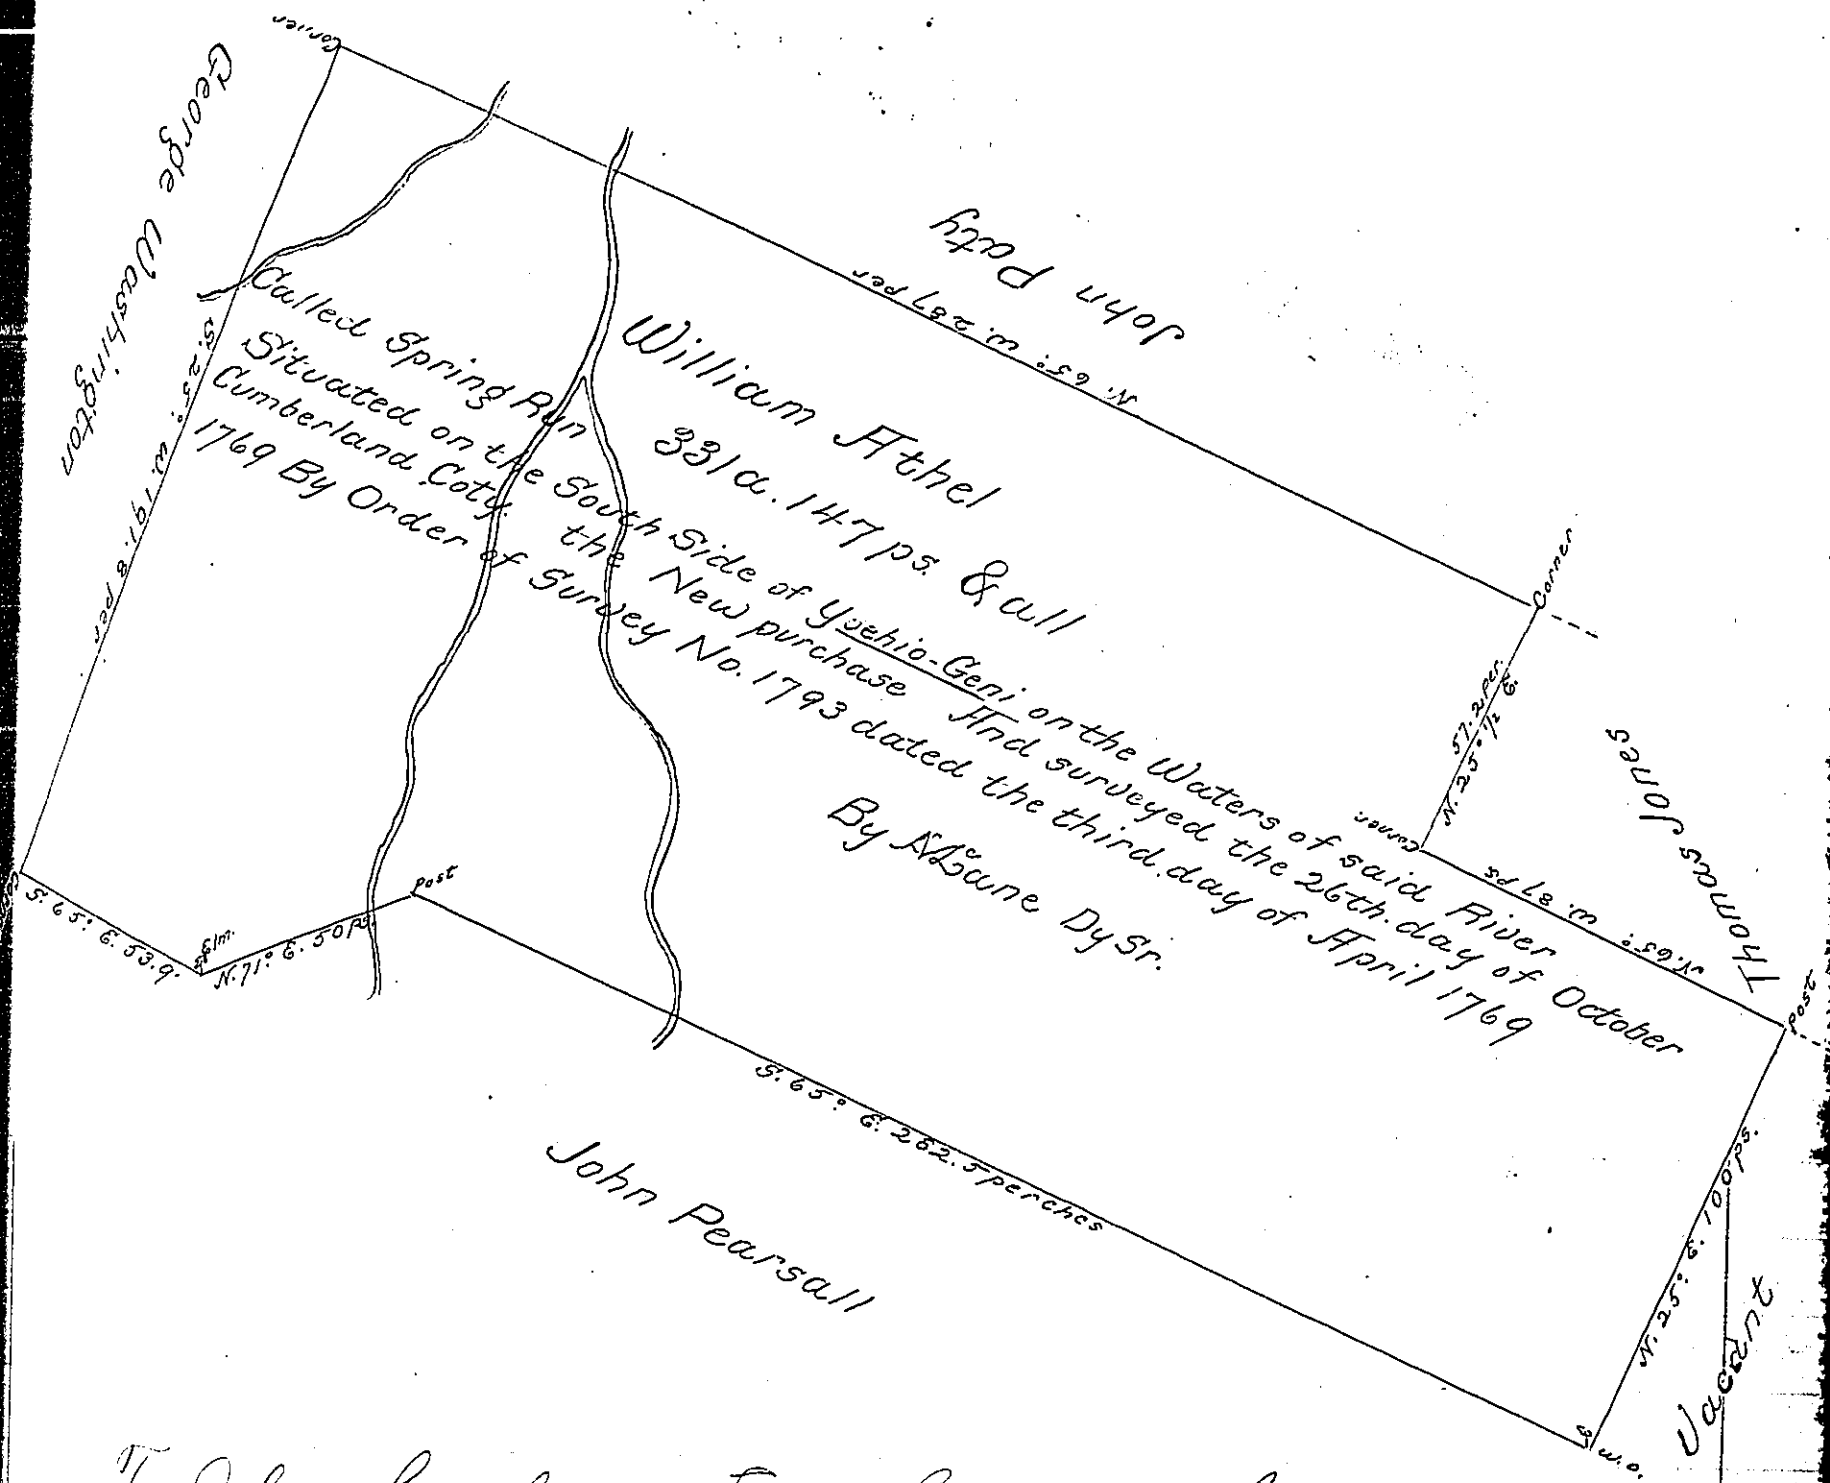 Corner
George Washington
John Paty
N. 65° W. 287 per
William Athel
331 a. 147 ps. & all
Called Spring Run
Situated on the South Side of Yoehio-Geni on the Waters of said River
Cumberland Coty. the New purchase And surveyed the 26th. day of October
1769 By Order of Survey No. 1793 dated the third day of April 1769
By Dy Sr.
S. 25° W. 191.8 per
Corner
57.2 per.
N. 25° 1/2 E.
Corner
N. 65° W. 87 ps
Thomas Jones
post
S. 65° E. 53.9.
Elm.
N. 71° E. 50 ps.
post
S. 65° E. 262.5 perches
John Pearsall
N. 25° E. 100 ps.
Vacant
W.O.